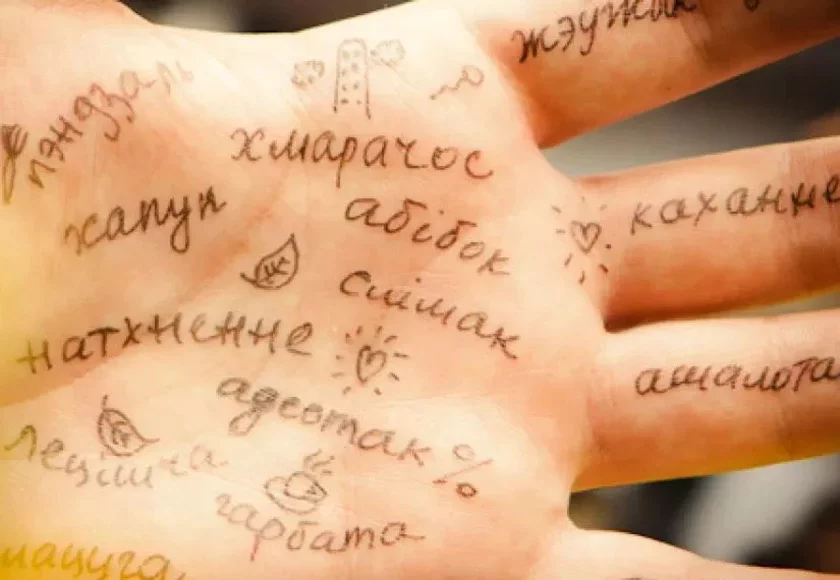 жэўжык
пэндзаль
хмарачос
хапун
абібок
каханне
слімак
натхненне
ашалота
адсотак %
лецішча
гарбата
мацуга